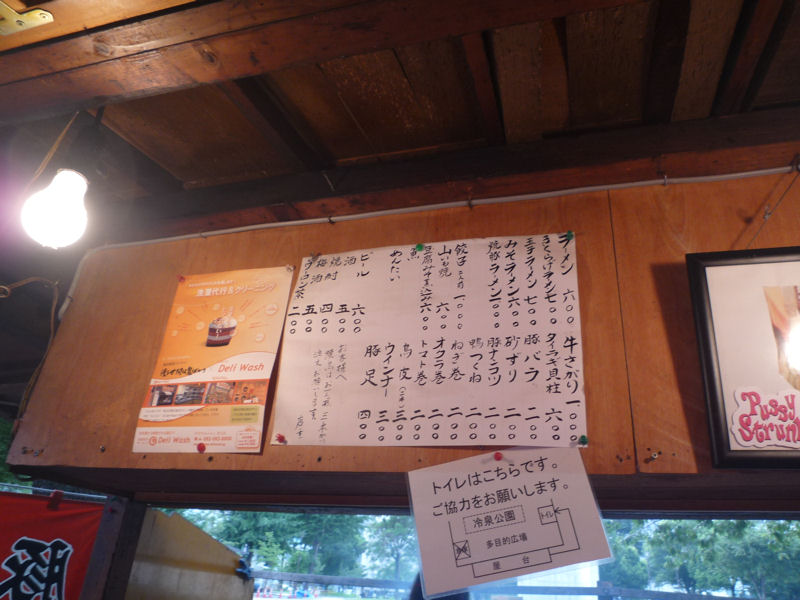 ラーメン 六〇〇
きくらげラーメン 七〇〇
玉子ラーメン 七〇〇
みそラーメン 六〇〇
焼豚ラーメン 一〇〇〇
餃子
山いも焼 六〇〇
豆腐みそ煮込み 六〇〇
魚
めんたい
ビール 六〇〇
酒 五〇〇
焼酎 四〇〇
梅酒 五〇〇
ウーロン茶 二〇〇
牛さがり 一〇〇〇
タイラギ貝柱 六〇〇
豚バラ 二〇〇
砂ずり 二〇〇
豚ナンコツ 二〇〇
鴨つくね 二〇〇
ねぎ巻 二〇〇
オクラ巻 二〇〇
トマト巻 二〇〇
鳥皮 三〇〇
ウインナー 三〇〇
豚足 四〇〇
お客様へ
店主
洗濯代行&クリーニング
Deli Wash
Deli Wash
トイレはこちらです。
ご協力をお願いします。
冷泉公園
トイレ
多目的広場
屋台
豚
Pussy